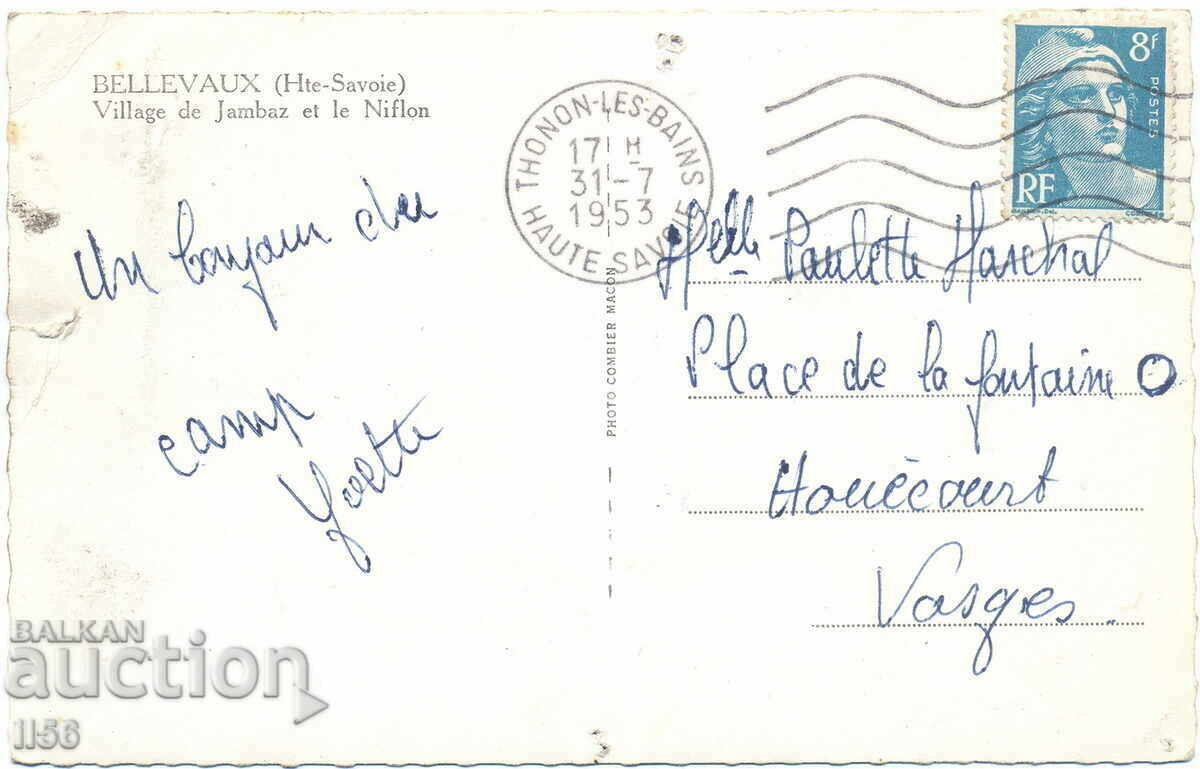 BELLEVAUX (Hte-Savoie)
Village de Jambaz et le Niflon
THONON-LES-BAINS
17 H
31-7
1953
HAUTE SAVOIE
8f
POSTES
RF
Un bonjour du
camp
Yvette
PHOTO COMBIER MACON
Melle Paulette Marchal
Place de la fontaine
Houécourt
Vosges
BALKAN
auction
il56